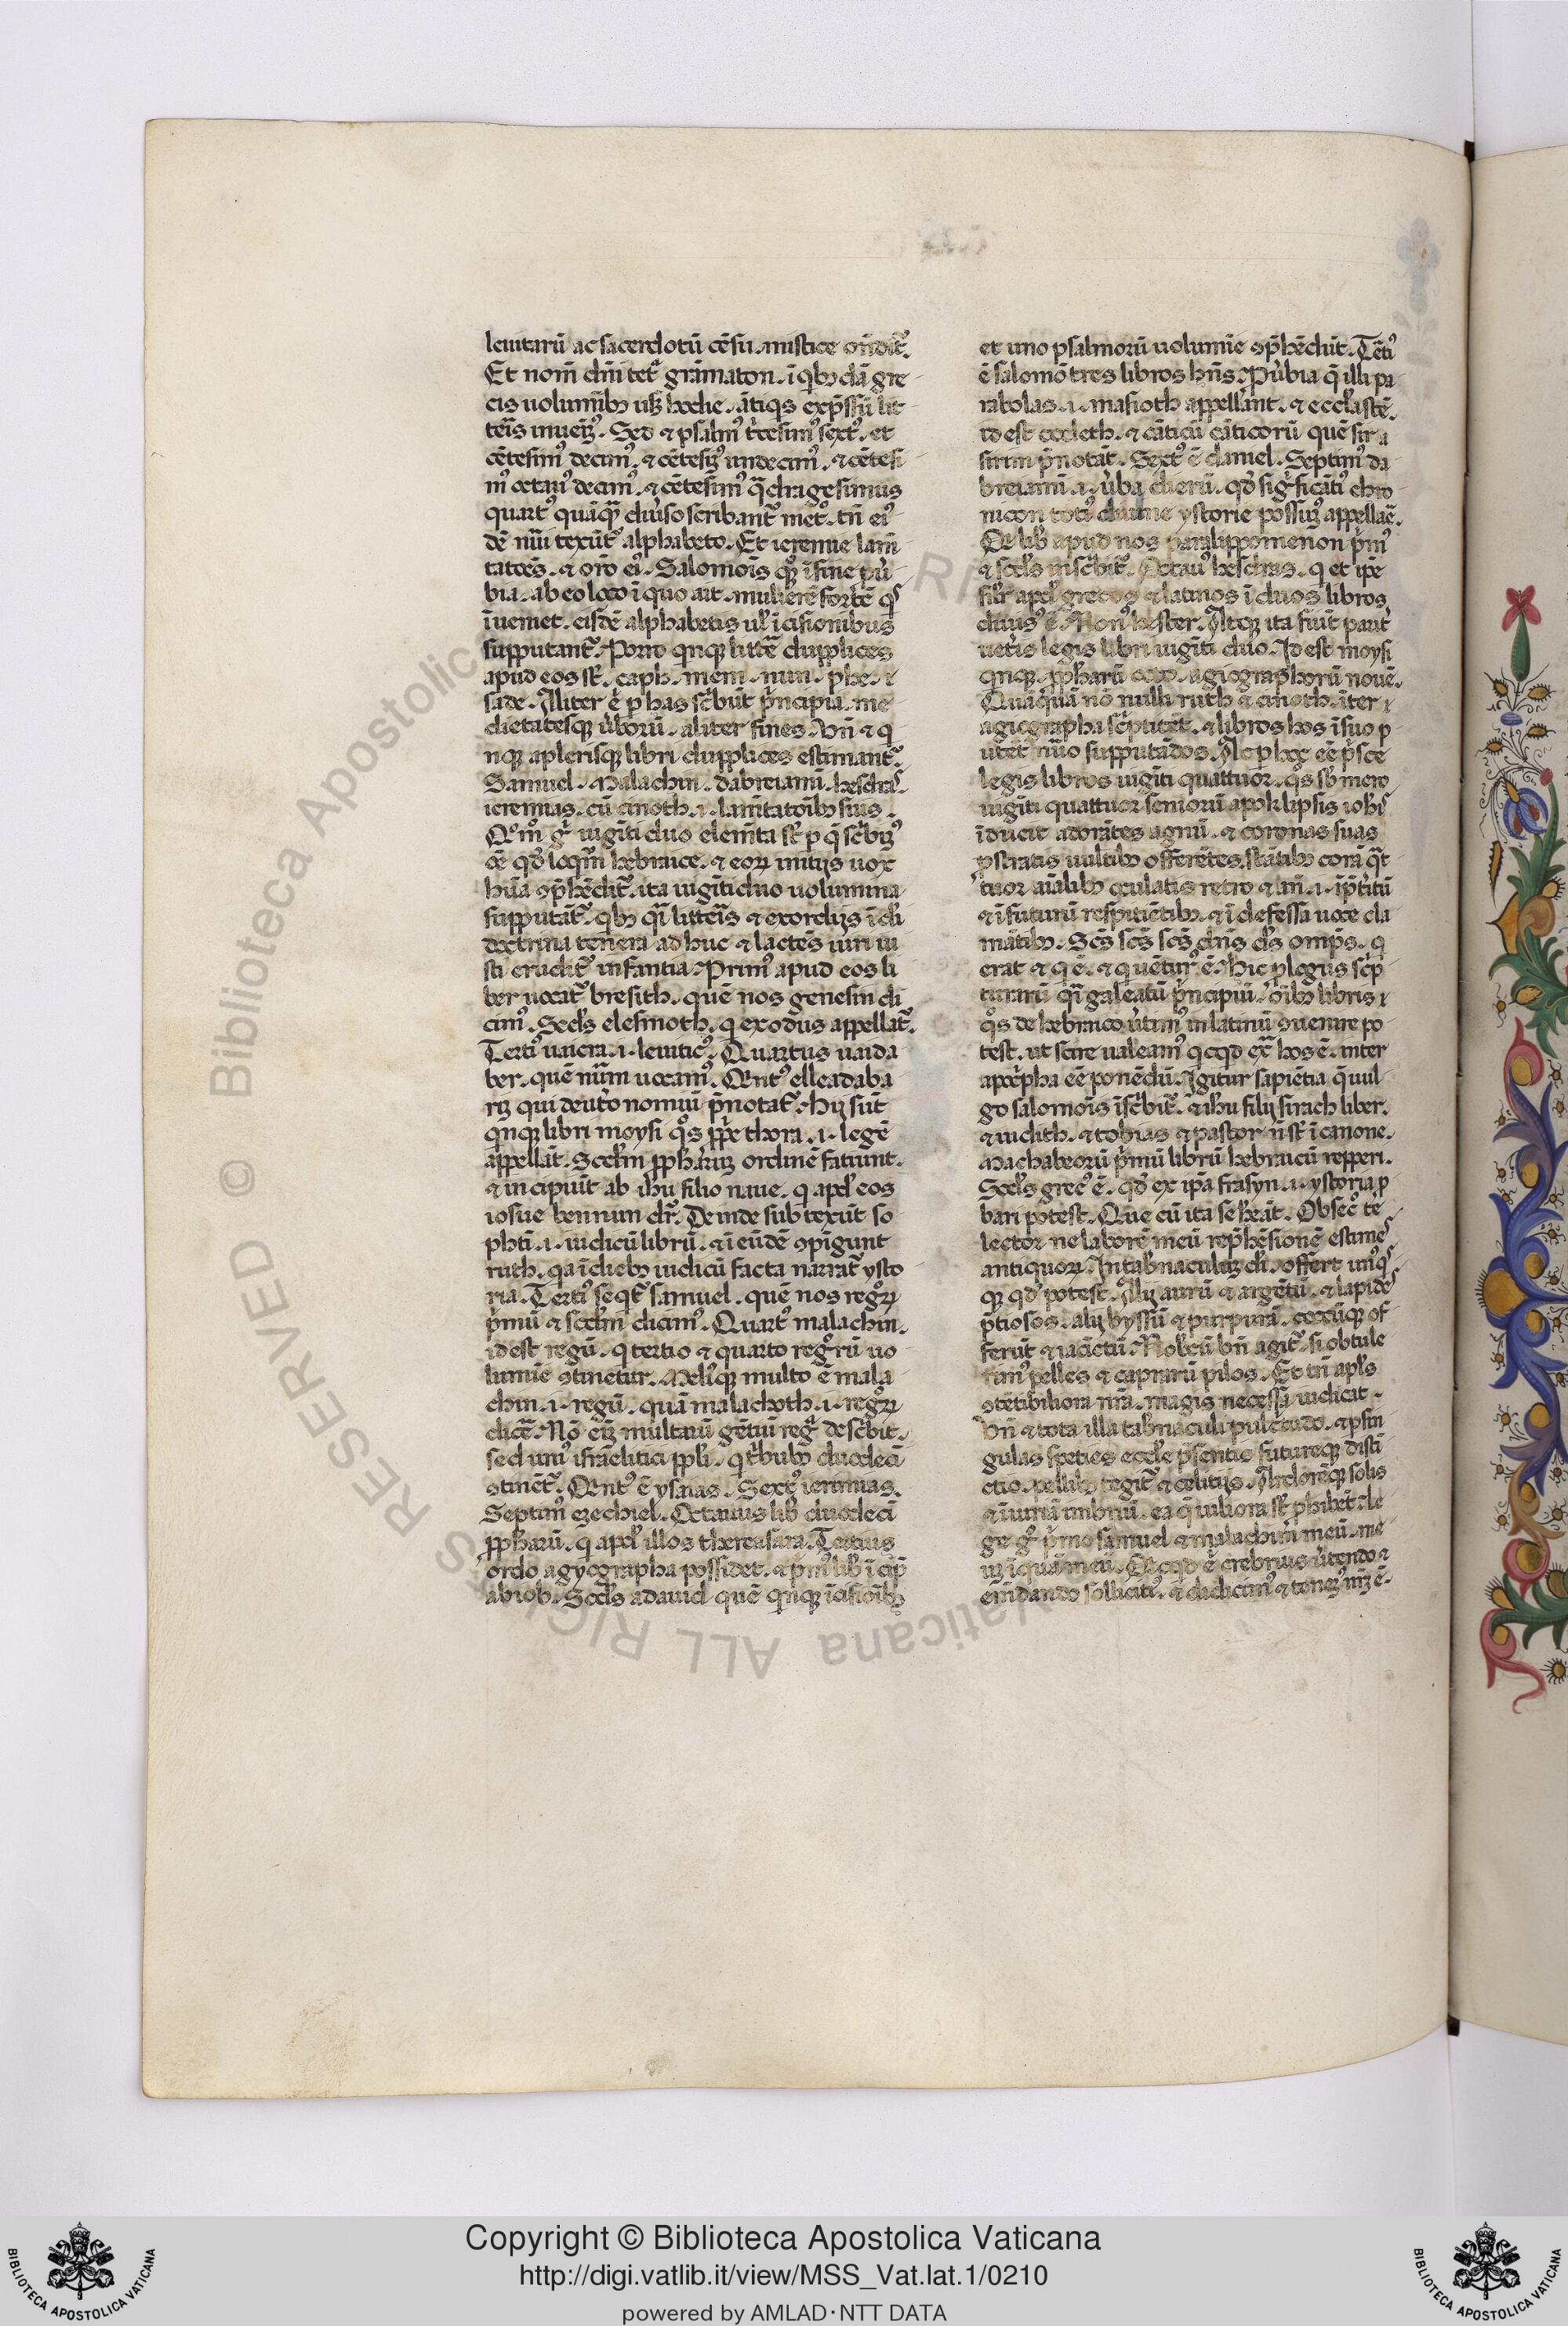 leuitarū ac sacerdotū cēsu. mistice oñdit᷑.
Et nom̄ dn̄i tet͛ grāmaton. ī qͥbꝫ dā gre
cis uolumībꝫ usqꝫ hodie. ātiqͥs exp̄ssū lit
teīs inueīꝰ. Sed ⁊ psalmꝰ tͥcesimꝰ sextꝰ. et
cētesimꝰ decimꝰ. ⁊ cētesiꝰ undecimꝰ. ⁊ cētesi
mꝰ octauꝰ decimꝰ. ⁊ cētesimꝰ qͣdragesimus
quartꝰ quāqͣ diuͥso scribant᷑ metͦ. tn̄ eiꝰ
dē nūi texūt᷑ alphabeto. Et ieremie lam̄
tatōēs. ⁊ orō eiꝰ. Salomoīs qͦꝫ ī fine ꝓu͛
bia. ab eo loco ī quo ait. mulierē fortē qͥs
īueniet. eisdē alphabetis ul̓ īcisionibus
supputant᷑. Porro qͥnqꝫ litt͛e dupplices
apud eos st̄. caph. mem. nun. phe. ⁊
sade. Aliter .n. ꝑ has sc͛būt pͥncipia. me
dietatesqꝫ u͛borū. aliter fines. Vn̄ ⁊ qͥ
nqꝫ a plerisqꝫ libri dupplices estimant᷑.
Samuel. Malachin. dabreiamī. heschras.
ieremias. cū cinoth .i. lam̄tatoībꝫ suis.
Qͦmͦ gͦ uigīti duo elem̄ta st̄ ꝑ q̄ sc͛bīꝰ
oē qd̓ loqͥmꝰ hebraice. ⁊ eoꝝ initijs uox
hūa ꝯp̄hēdit᷑. ita uigīti duo uolumina
supputāt᷑. qͥbꝫ qͣi litteīs ⁊ exordijs ī di
doctrina tenera adhuc ⁊ lactēs uiri iu
sti erudit᷑ infantia. Primꝰ apud eos li
ber uocat᷑ bresith. quē nos genesim di
cimꝰ. Scd̓s elesmoth. qͥ exodus appellat᷑.
Tertiꝰ uaicra .i. leuiticꝰ. Quartus uaida
ber. quē nūm uocamꝰ. Qͥntꝰ elleadaba
rī qui deut͛onomiū p̄notat᷑. Hij sūt
qͥnqꝫ libri moysi qͦs ꝓpͥe thora .i. legē
appellāt. Scd̓m ꝓphaꝝ ordinē fatiunt.
⁊ incipiūt ab ih̄u filio naue. qͥ apd̓ eos
iosue bennun dr̄. Deinde subtexūt so
phtī .i. iudicū librū. ⁊ ī eūdē ꝯpīgunt
ruth. qͥa ī diebꝫ iudicū facta narrat᷑ ysto
ria. Tertiꝰ seqͥt᷑ samuel. quē nos regͦꝝ
pͥmū ⁊ scd̓m dicimꝰ. Quartꝰ malachin.
id est regū. qͥ tertio ⁊ quarto regͦrū uo
lumīe ꝯtinetur. Meliꝰqꝫ multo ē mala
chin .i. regū. quā malachoth .i. regͦꝝ
dic͛e. Nō .n. multarū gētiū regͣ desc͛bit.
sed uniꝰ israelitici ppl̓i. qͥ tͥbubꝫ duodecī
ꝯtinēt᷑. Qͥntꝰ ē ysaias. Sextꝰ ieremias.
Septimꝰ ezechiel. Octauus lib̓ duodecī
ꝓpharū. qͥ apd̓ illos thereasara. Tertius
ordo agyographa possidet. ⁊ pͥmꝰ lib̓ īcip̄
ab iob. Scd̓s a dauid quē qͥnqꝫ īcisioībꝫ
et uno psalmorū uolumīe ꝯp̄hēdūt. Tertiꝰ
ē salomō tres libros hn̄s. Ꝓu͛bia q̄ illi pa
rabolas .i. masloth appellant. ⁊ eccl̓astē.
id est coeleth. ⁊ cāticū cāticorū quē sir a
sirim p̄notāt. Sextꝰ ē daniel. Septimꝰ da
breiamī .i. u͛ba dierū. qd̓ sig͛ficātiꝰ chro
nicon totiꝰ diuine ystorie possuꝰ appellāe.
Qͥ lib̓ apud nos paralippomenon pͥmꝰ
⁊ scd̓s insc͛bit᷑. Octauꝰ heschras. qͥ et ipe
sil͛r apd̓ grecos ⁊ latinos ī duos libros
diuisꝰ ē. Nonꝰ hester. Atqꝫ ita fiūt parit͛
uet͛is legis libri uigīti duo. Id est moysi
qͥnqꝫ. ꝓpharū octo. agiographorū nouē.
Quāqͣ nō nulli ruth ⁊ cinoth. īter
agiographa sc͛ptitēt. ⁊ libros hos ī suo p
utēt nūo supputādos. Ac ꝑ hoc eē pͥsce
legis libros uigīti quattuor. qͦs sb̓ nūero
uigīti quattuor seniorū apokalipsis ioh̄is
īducit adorātes agnū. ⁊ coronas suas
ꝓstratis uultibꝫ offerētes. stātibꝫ corā qͣt
tuor aīalibꝫ oculatis retro ⁊ an̄ .i. ī p̄titū
⁊ ī futurū respitiētibꝫ. ⁊ īdefessa uoce cla
mātibꝫ. Scs̄ scs̄ scs̄ dn̄s ds̄ omp̄s. qͥ
erat ⁊ qͥ ē. ⁊ qͥ uēturꝰ ē. Hic ꝓlogus sc͛ip
turarū qͣi galeatū pͥncipiū. oībꝫ libris
qͦs de hebraico u͛timꝰ in latinū ꝯuenire po
test. ut scire ualeamꝰ qͥcqͥd ext͛ hos ē. inter
apoc͛pha eē ponēdū. Igitur sapiētia q̄ uul
go salomoīs īsc͛bit᷑. ⁊ ih̄u filij sirach liber.
⁊ iudith. ⁊ tobias ⁊ pastor n̄ st̄ ī canone.
Machabeorū pͥmū librū hebraicū repperi.
Scd̓s grecꝰ ē. qd̓ ex ip̄a frasyn .i. ystoria ꝓ
bari potest. Que cū ita se hēāt. Obsecͦ te
lector ne laborē meū rep̄hēsionē estimes
antiquoꝝ. In tab̓naculuꝫ di offert unꝰqͥs
qꝫ qd̓ potest. Alij aurū ⁊ argētū. ⁊ lapides
p̄tiosos. alij byssū ⁊ purpurā. coccūqꝫ of
ferūt ⁊ iacictū. Nobcū bn̄ agit᷑. si obtule
rimꝰ pelles ⁊ caprarū pilos. Et tn̄ apl̓s
ꝯtētibiliora nr̄a. magis necessa iudicat.
Vn̄ ⁊ tota illa tab̓naculi pulc͛tudo. ⁊ ꝑ sin
gulas speties eccl̓e p̄sentis futureqꝫ disti
ctio. pellibꝫ tegit᷑ ⁊ cilitijs. Ardorēqꝫ solis
⁊ iniuriā imbriū. ea q̄ uiliora st̄ ꝓhibēt. Le
ge gͦ pͥmo samuel ⁊ malachim meū. me
uꝫ īquā meū. Qͥcqͥd .n. crebrius u͛tendo ⁊
em̄dando sollicitiꝰ. ⁊ didicimꝰ ⁊ tenemꝰ nr̄ꝫ ē.
Copyright © Biblioteca Apostolica Vaticana
http://digi.vatlib.it/view/MSS_Vat.lat.1/0210
powered by AMLAD·NTT DATA
BIBLIOTECA APOSTOLICA VATICANA
BIBLIOTECA APOSTOLICA VATICANA
© Biblioteca Apostolica Vaticana ALL RIGHTS RESERVED